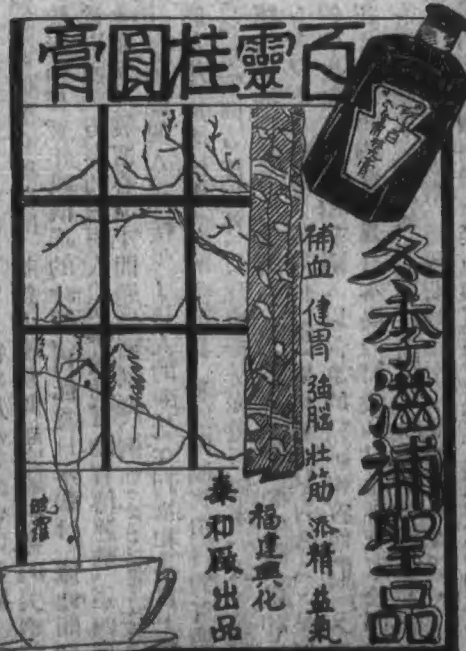 百靈桂圓膏
冬季滋補聖品
補血 健胃 強腦 壯筋 添精 益氣
福建興化
泰和廠出品